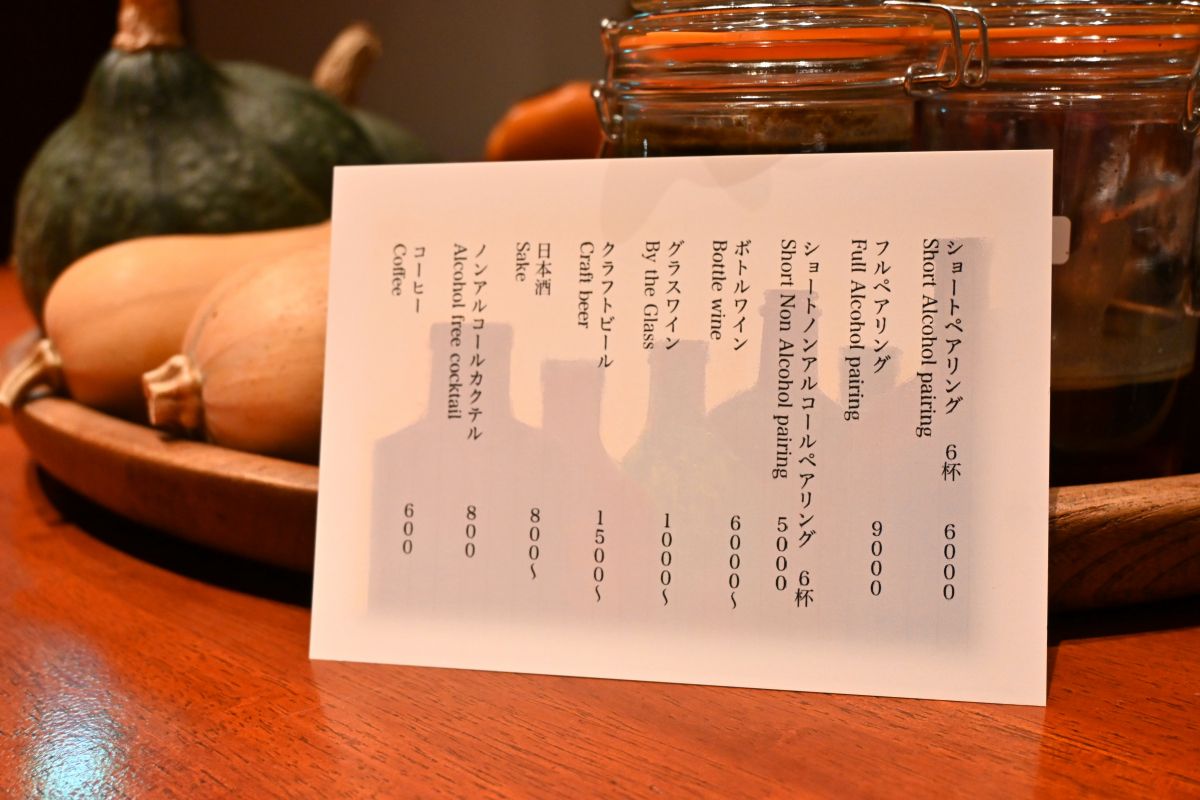 ショートペアリング　6杯　6000
Short Alcohol pairing
フルペアリング　9000
Full Alcohol pairing
ショートノンアルコールペアリング　6杯
Short Non Alcohol pairing　5000
ボトルワイン　6000〜
Bottle wine
グラスワイン　1000〜
By the Glass
クラフトビール　1500〜
Craft beer
日本酒　800〜
Sake
ノンアルコールカクテル　800
Alcohol free cocktail
コーヒー　600
Coffee